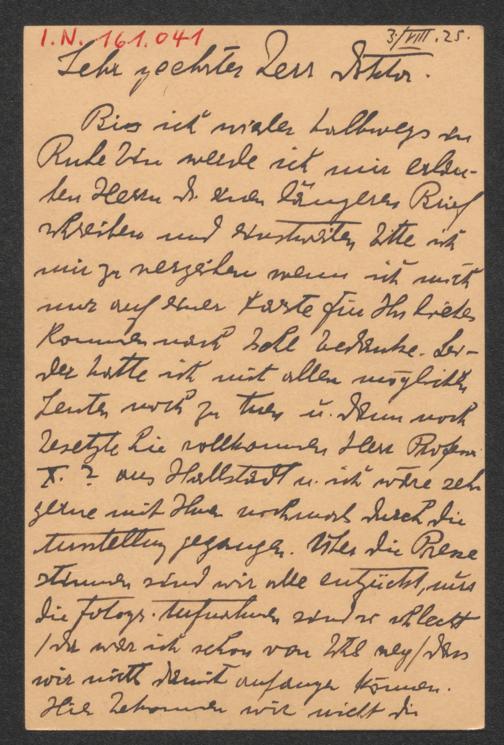 I.N. 161.041
3/VIII.25.
Sehr geehrter Herr Doktor.
Bis ich wieder halbwegs in
Ruhe bin werde ich mir erlau-
ben Herrn Dr. einen längeren Brief
schreiben und einstweilen bitte ich
mir zu verzeihen wenn ich mich
nur auf einer Karte für Ihr liebes
Kommen nach Hall bedanke. Lei-
der hatte ich mit allen möglichen
Leuten noch zu tuen u. dann noch
besetzte Sie vollkommen Herr Professor
X. ? aus Hallstadt u. ich wäre sehr
gerne mit Ihnen nochmals durch die
Ausstellung gegangen. Über die Presse
stimmen sind wir alle entzückt, nur
die fotogr. Aufnahmen sind so schlecht
/da war ich schon von weg/ dass
wir nicht damit anfangen können.
Hier bekommen wir nicht die